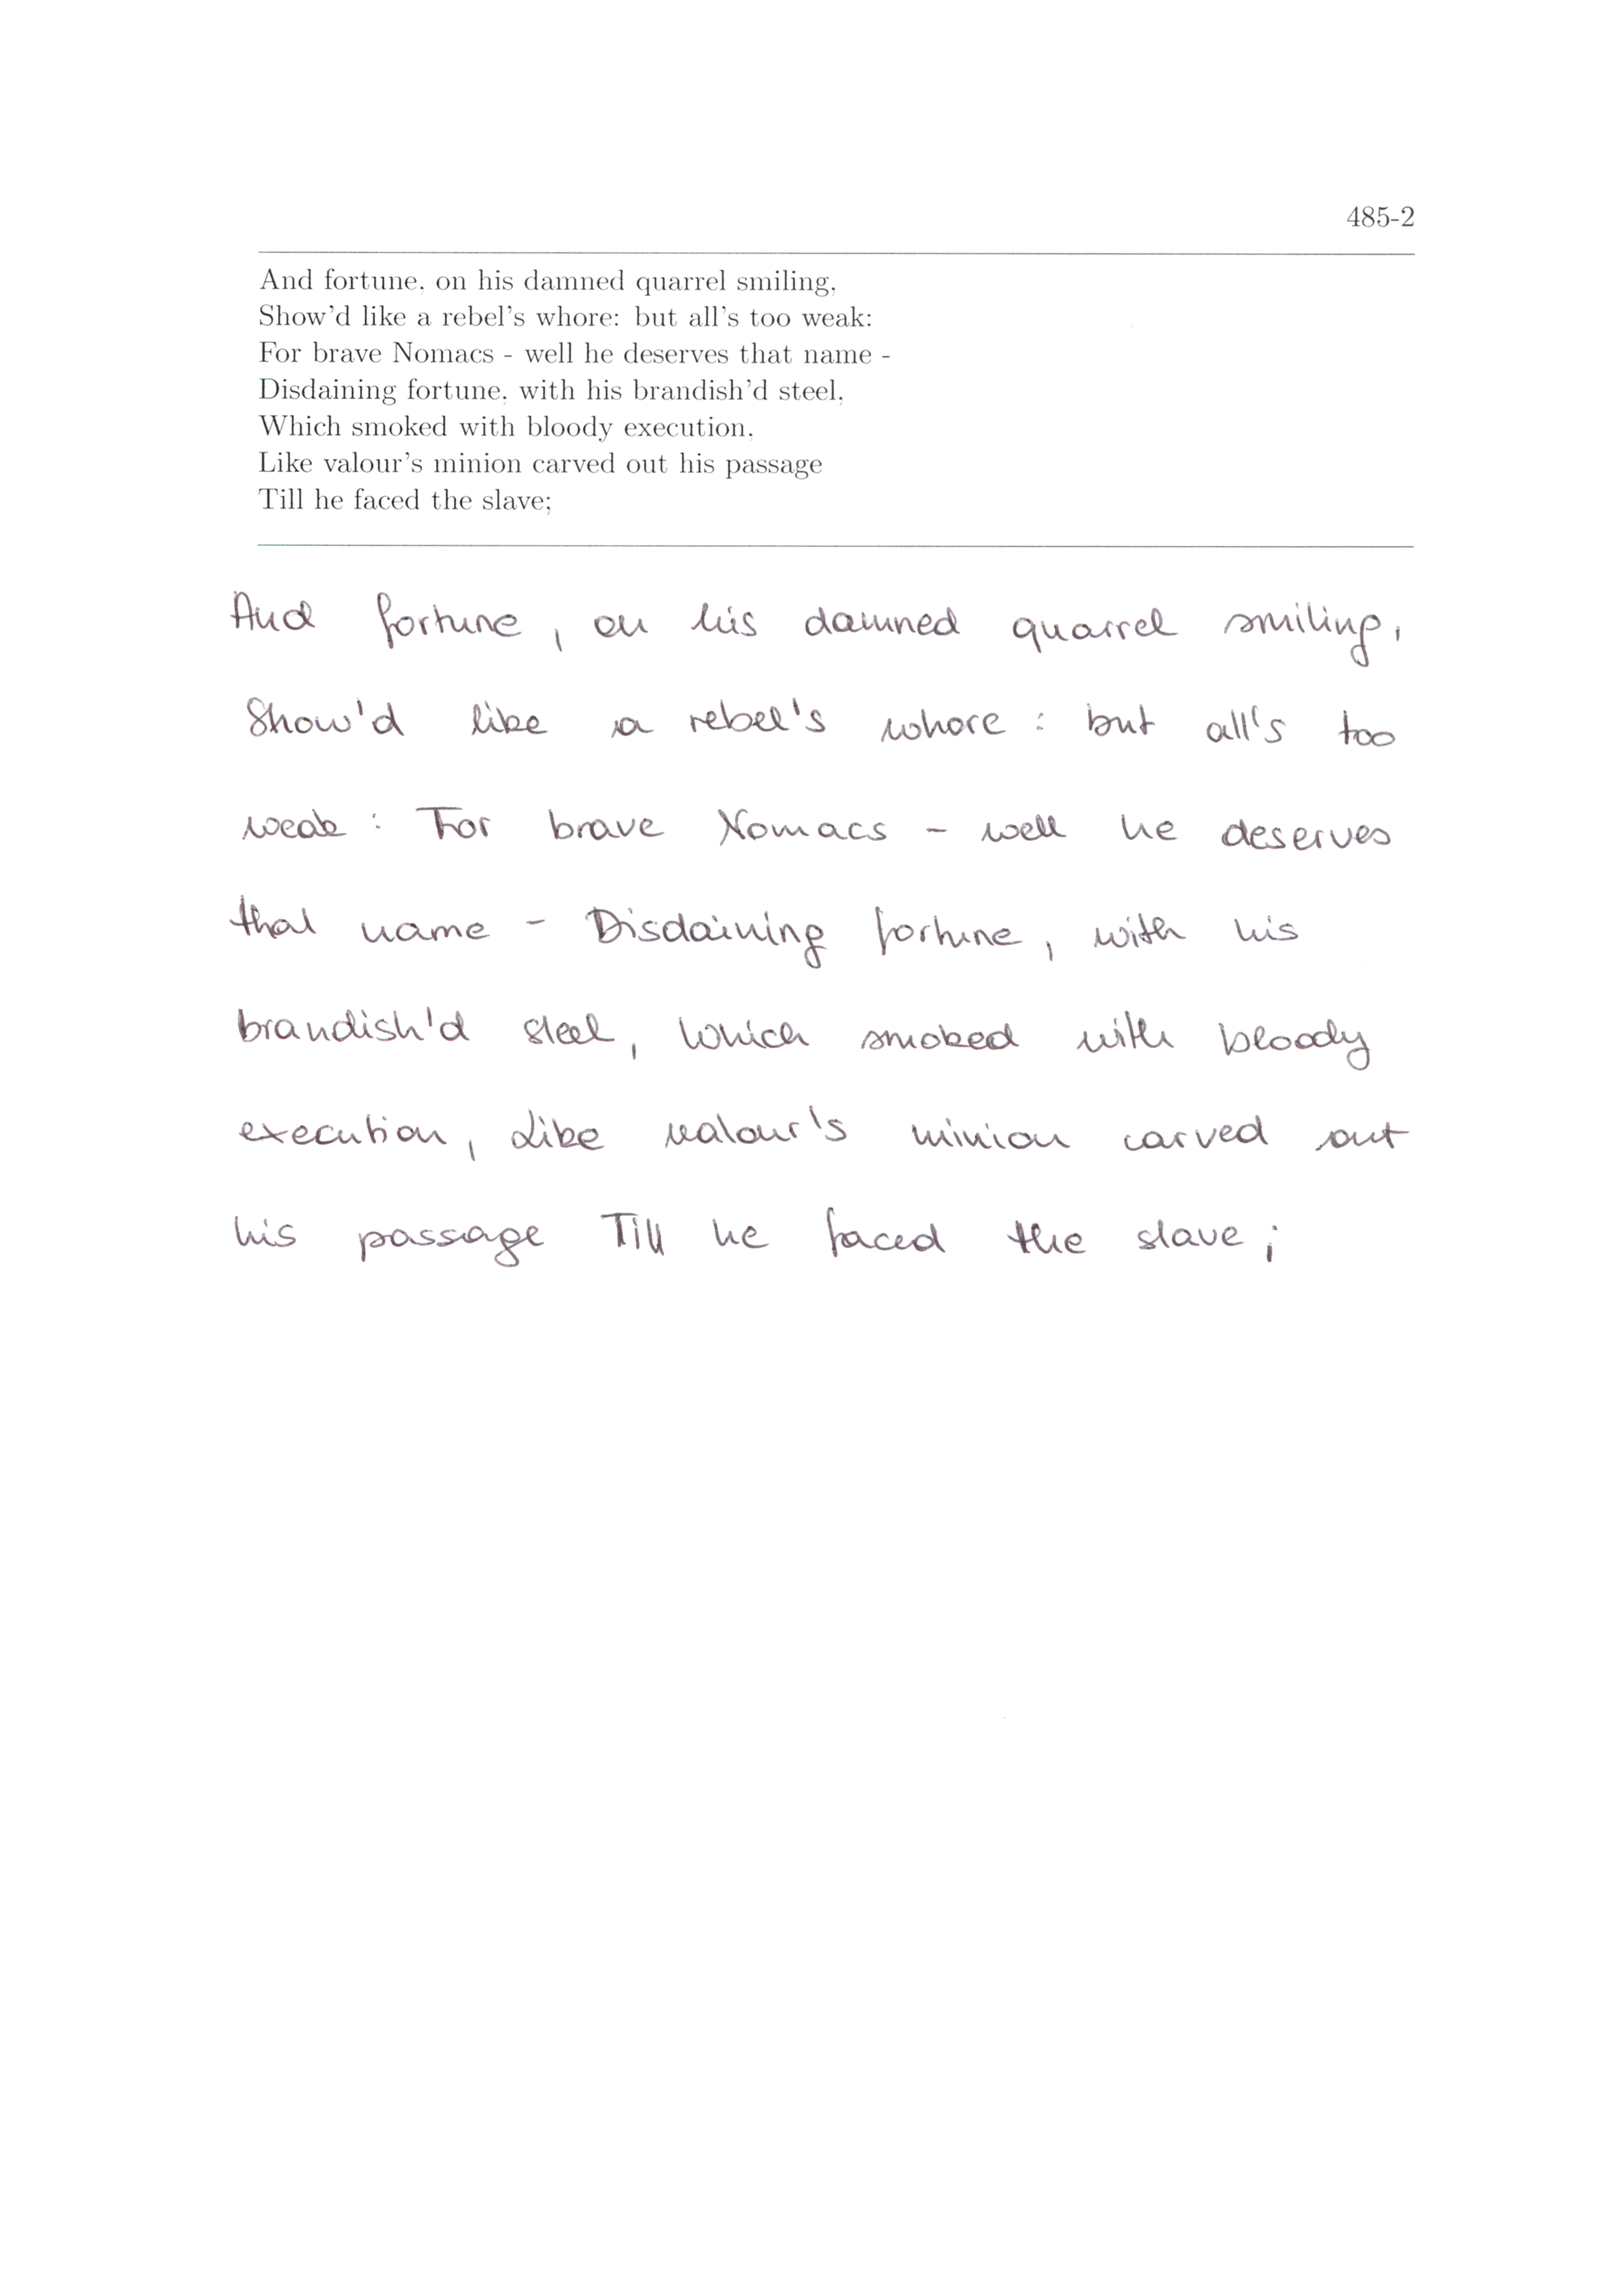 485-2
And fortune, on his damned quarrel smiling,
Show'd like a rebel's whore: but all's too weak:
For brave Nomacs - well he deserves that name -
Disdaining fortune, with his brandish'd steel,
Which smoked with bloody execution,
Like valour's minion carved out his passage
Till he faced the slave;
And fortune, on his damned quarrel smiling,
Show'd like a rebel's whore : but all's too
weak : For brave Nomacs - well he deserves
that name - Disdaining fortune, with his
brandish'd steel, Which smoked with bloody
execution, Like valour's minion carved out
his passage Till he faced the slave;